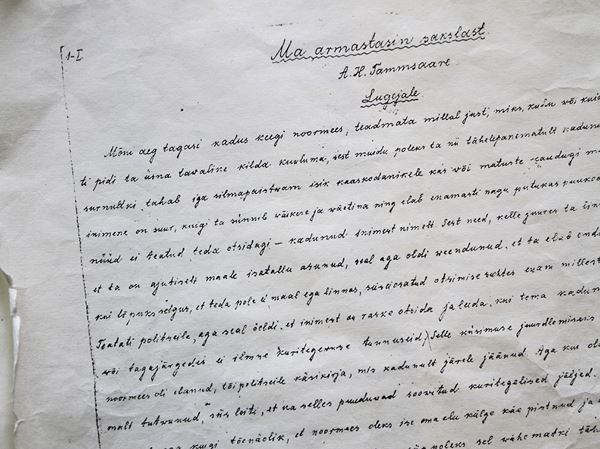 1-I
Ma armastasin sakslast
A. H. Tammsaare
Lugejale.
Mõni aeg tagasi kadus keegi noormees, teadmata millal just, miks, kuhu või kuid
ti pidi ta üsna tavalise kilda kuuluma, sest muidu poleks ta nii tähelepanematult kadunud
surnultki tahab iga silmapaistvam isik kaaskodanikele kas või matuste-saudugi
inimene on suur, kuigi ta sünnib väikese ja väetina ning elab enamasti nagu putukas
nüüd ei teatud teda otsidagi – kadunud inimest nimelt. Sest need, kelle juures ta
et ta on ajutiselt maale isatallu asunud, seal aga oldi veendunud, et ta elab
kui lõpuks selgus, et teda pole ei maal ega linnas, siis otsimise suhtes enam
Teatati politseile, aga seal öeldi, et inimest on raske otsida ja leida, kui tema
või tagajärgedes ei ilmne kuritegevuse tunnuseid. Selle küsimuse juurdlemiseks
noormees oli elanud, tõi politseile käsikirja, mis kadunult järele jäänud. Aga kus
malt tutvunud, siis leiti, et ka selles puuduvad soovitud kuritegelised jäljed.
kuigi tõenäolik, et noormees oleks ise oma elu külge käe pistnud ja
poleks sel vähematki